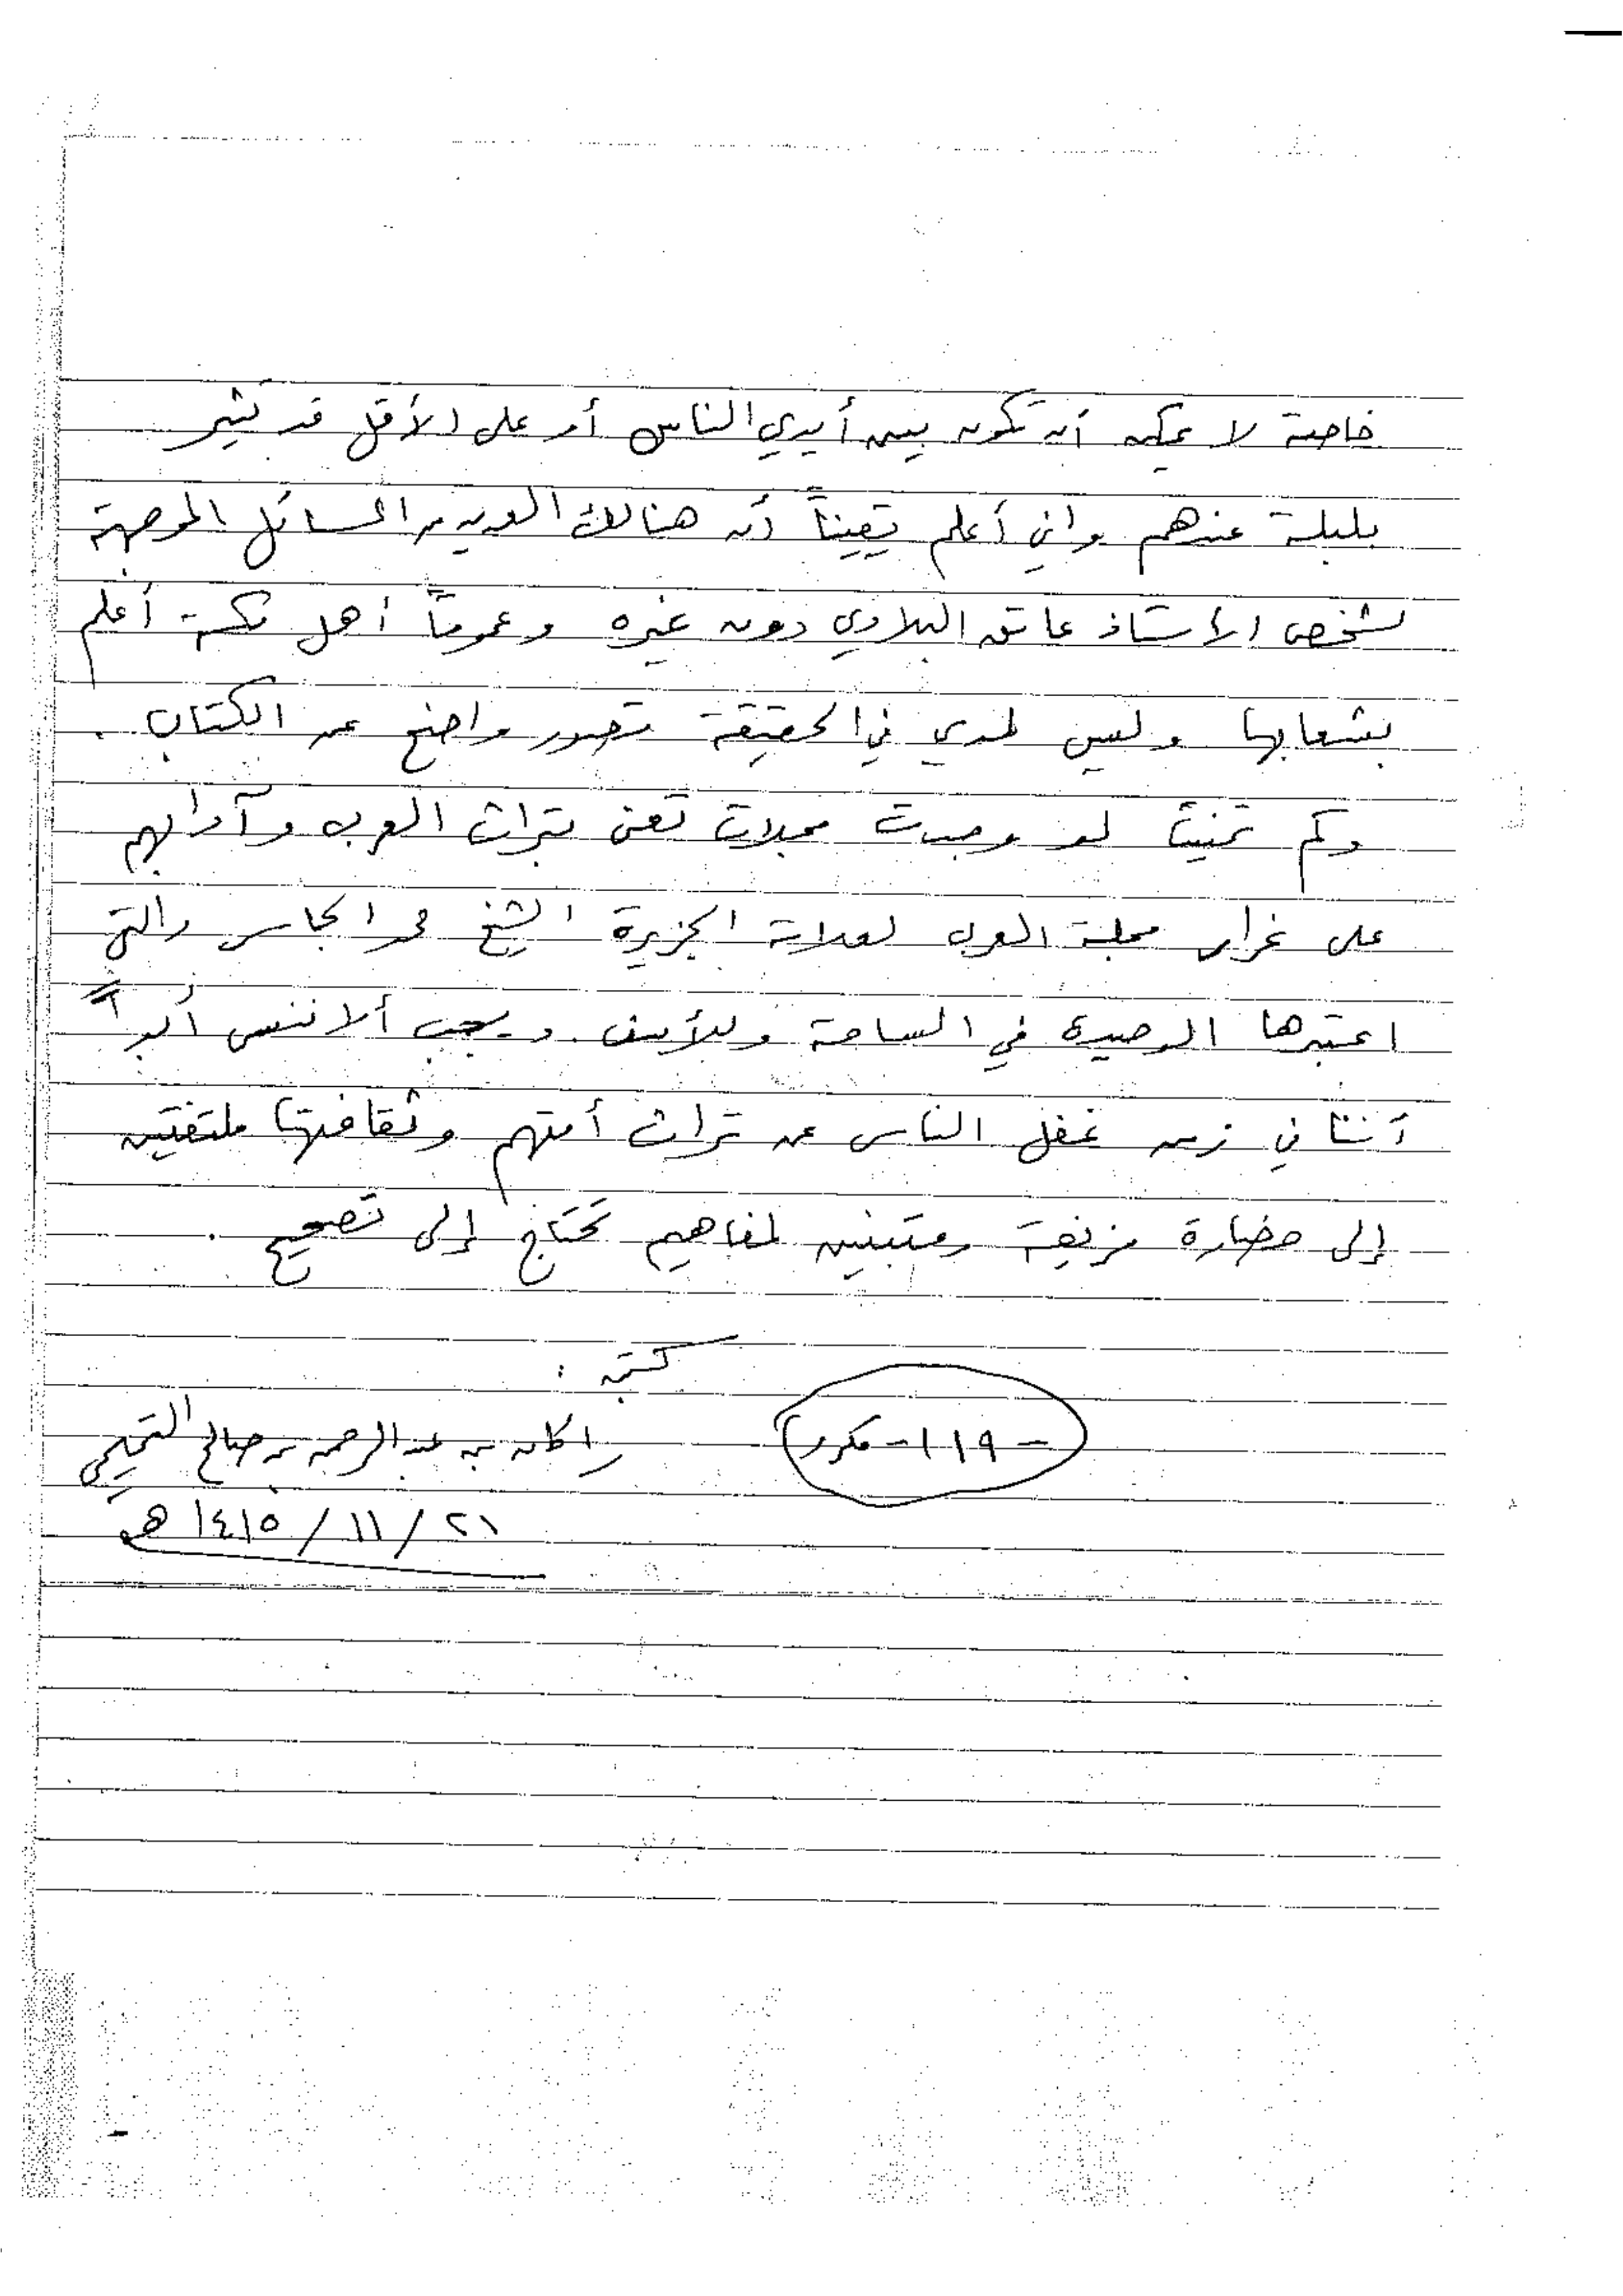 خاصة لا يمكن أن تكون بين أيدي الناس أو على الأقل قد تثير
بلبلة عندهم وإني أعلم يقيناً أن هنالك العديد من المسائل الموجهة
لشخص الأستاذ عاتق البلادي دون غيره وعموماً أهل مكة أعلم
بشعابها وليس لدي في الحقيقة تصور واضح عن الكتاب .
وكم تمنيت لو وجدت مجلات تعنى بتراث العرب وآدابهم
على غرار مجلة العرب لعلامة الجزيرة الشيخ حمد الجاسر والتي
اعتبرها الوحيدة في الساحة وللأسف. ويجب ألا ننسى أبداً
أننا في زمن غفل الناس عن تراث أمتهم وثقافتها ملتفتين
إلى حضارة مزيفة ومتبنين لمفاهيم تحتاج إلى تصحيح .
كتبه :
راكان بن عبدالرحمن بن صالح
-١١٩- مكرر
٢١ / ١١ / ١٤١٥ هـ